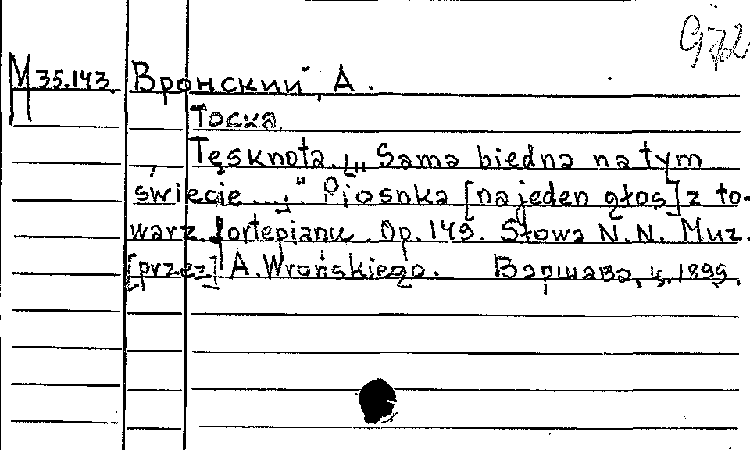 972
M 35.143 Вронский, А.
Тоска.
Tęsknota. „Sama biedna na tym
świecie..." Piosnka [na jeden głos] z to-
warz. fortepianu. Op. 149. Słowa N.N. Muz.
[przez] A. Wrońskiego. Варшава, ц. 1899.